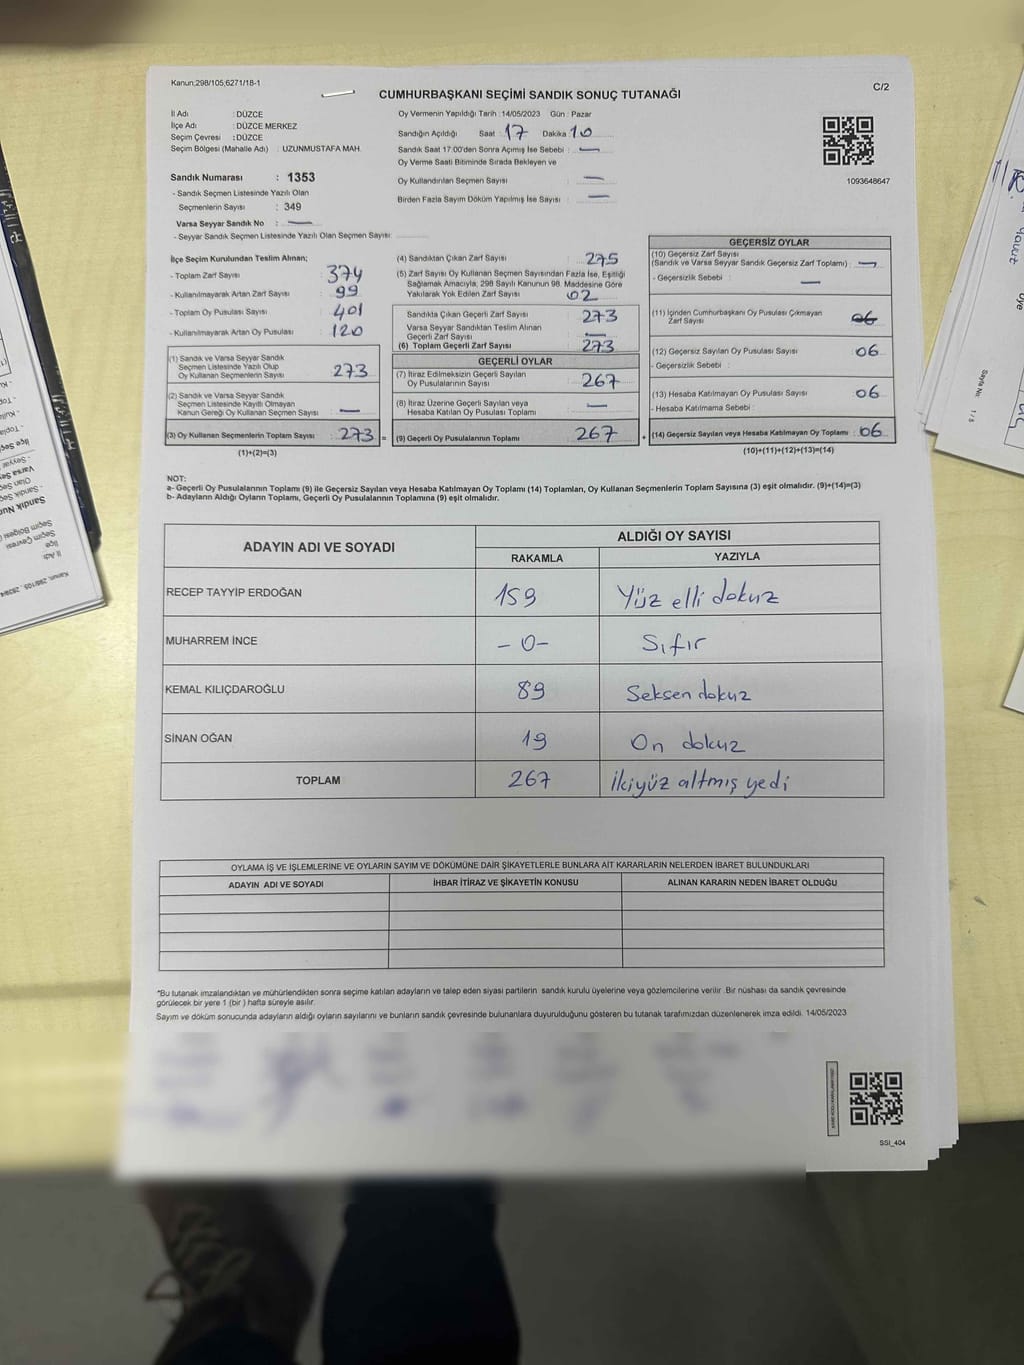 Kanun;298/105;6271/18-1
C/2
CUMHURBAŞKANI SEÇİMİ SANDIK SONUÇ TUTANAĞI
İl Adı : DÜZCE
İlçe Adı : DÜZCE MERKEZ
Seçim Çevresi : DÜZCE
Seçim Bölgesi (Mahalle Adı) : UZUNMUSTAFA MAH.
Oy Vermenin Yapıldığı Tarih : 14/05/2023 Gün : Pazar
Sandığın Açıldığı Saat : 17 Dakika : 10
Sandık Saat 17:00'den Sonra Açımış İse Sebebi : —
Oy Verme Saati Bitiminde Sırada Bekleyen ve
Oy Kullandırılan Seçmen Sayısı : —
Birden Fazla Sayım Döküm Yapılmış İse Sayısı : —
1093648647
Sandık Numarası : 1353
- Sandık Seçmen Listesinde Yazılı Olan
Seçmenlerin Sayısı : 349
Varsa Seyyar Sandık No : —
- Seyyar Sandık Seçmen Listesinde Yazılı Olan Seçmen Sayısı:
İlçe Seçim Kurulundan Teslim Alınan;
- Toplam Zarf Sayısı 374
- Kullanılmayarak Artan Zarf Sayısı 99
- Toplam Oy Pusulası Sayısı 401
- Kullanılmayarak Artan Oy Pusulası 120
(1) Sandık ve Varsa Seyyar Sandık
Seçmen Listesinde Yazılı Olup
Oy Kullanan Seçmenlerin Sayısı 273
(2) Sandık ve Varsa Seyyar Sandık
Seçmen Listesinde Kayıtlı Olmayan
Kanun Gereği Oy Kullanan Seçmen Sayısı —
(3) Oy Kullanan Seçmenlerin Toplam Sayısı 273 =
(1)+(2)=(3)
(4) Sandıktan Çıkan Zarf Sayısı 275
(5) Zarf Sayısı Oy Kullanan Seçmen Sayısından Fazla İse, Eşitliği
Sağlamak Amacıyla; 298 Sayılı Kanunun 98. Maddesine Göre
Yakılarak Yok Edilen Zarf Sayısı 02
Sandıkta Çıkan Geçerli Zarf Sayısı 273
Varsa Seyyar Sandıktan Teslim Alınan
Geçerli Zarf Sayısı —
(6) Toplam Geçerli Zarf Sayısı 273
GEÇERLİ OYLAR
(7) İtiraz Edilmeksizin Geçerli Sayılan
Oy Pusulalarının Sayısı 267
(8) İtiraz Üzerine Geçerli Sayılan veya
Hesaba Katılan Oy Pusulası Toplamı —
(9) Geçerli Oy Pusulalarının Toplamı 267 +
GEÇERSİZ OYLAR
(10) Geçersiz Zarf Sayısı
(Sandık ve Varsa Seyyar Sandık Geçersiz Zarf Toplamı) : —
- Geçersizlik Sebebi : —
(11) İçinden Cumhurbaşkanı Oy Pusulası Çıkmayan
Zarf Sayısı 06
(12) Geçersiz Sayılan Oy Pusulası Sayısı 06
- Geçersizlik Sebebi :
(13) Hesaba Katılmayan Oy Pusulası Sayısı 06
- Hesaba Katılmama Sebebi :
(14) Geçersiz Sayılan veya Hesaba Katılmayan Oy Toplamı : 06
(10)+(11)+(12)+(13)=(14)
NOT:
a- Geçerli Oy Pusulalarının Toplamı (9) ile Geçersiz Sayılan veya Hesaba Katılmayan Oy Toplamı (14) Toplamları, Oy Kullanan Seçmenlerin Toplam Sayısına (3) eşit olmalıdır. (9)+(14)=(3)
b- Adayların Aldığı Oyların Toplamı, Geçerli Oy Pusulalarının Toplamına (9) eşit olmalıdır.
ADAYIN ADI VE SOYADI ALDIĞI OY SAYISI
RAKAMLA YAZIYLA
RECEP TAYYİP ERDOĞAN 159 Yüz elli dokuz
MUHARREM İNCE -0- Sıfır
KEMAL KILIÇDAROĞLU 89 Seksen dokuz
SİNAN OĞAN 19 On dokuz
TOPLAM 267 İkiyüz altmış yedi
OYLAMA İŞ VE İŞLEMLERİNE VE OYLARIN SAYIM VE DÖKÜMÜNE DAİR ŞİKAYETLERLE BUNLARA AİT KARARLARIN NELERDEN İBARET BULUNDUKLARI
ADAYIN ADI VE SOYADI İHBAR İTİRAZ VE ŞİKAYETİN KONUSU ALINAN KARARIN NEDEN İBARET OLDUĞU
*Bu tutanak imzalandıktan ve mühürlendikten sonra seçime katılan adayların ve talep eden siyasi partilerin sandık kurulu üyelerine veya gözlemcilerine verilir .Bir nüshası da sandık çevresinde
görülecek bir yere 1 (bir ) hafta süreyle asılır.
Sayım ve döküm sonucunda adayların aldığı oyların sayılarını ve bunların sandık çevresinde bulunanlara duyurulduğunu gösteren bu tutanak tarafımızdan düzenlenerek imza edildi. 14/05/2023
SSI_404
Sayfa No: 1 / 5